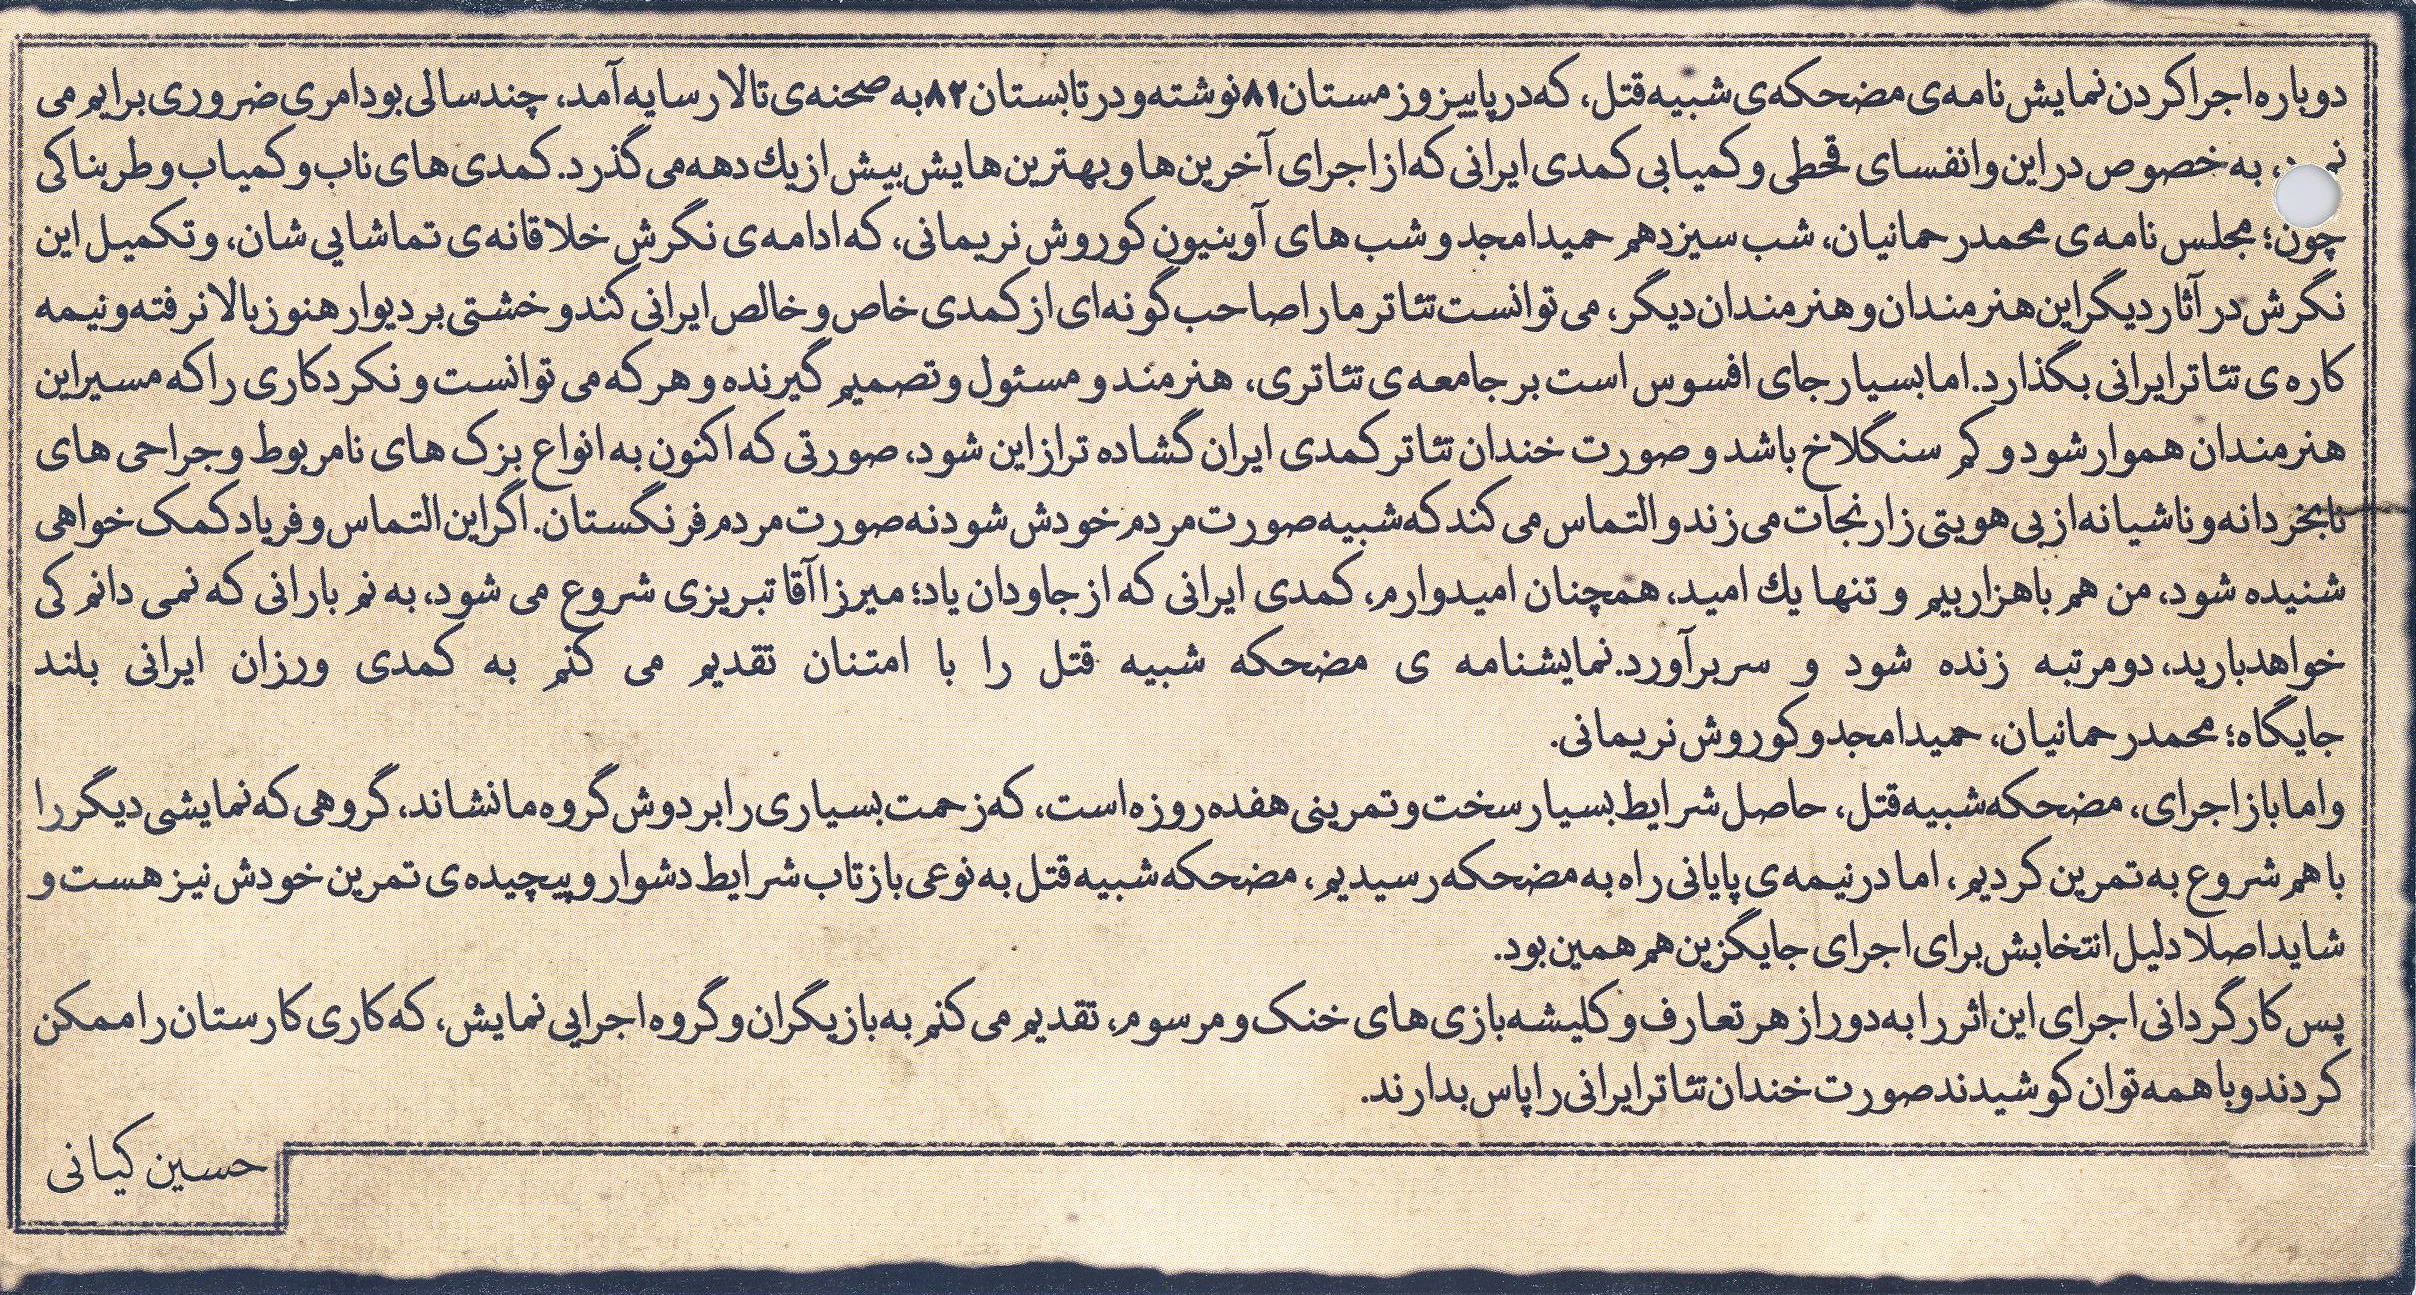 دوباره اجرا کردن نمایش نامه ی مضحکه ی شبیه قتل، که در پاییز و زمستان ۸۱ نوشته و در تابستان ۸۲ به صحنه ی تالار سایه آمد، چند سالی بود امری ضروری برایم می
به خصوص در این وانفسای قحطی و کمیابی کمدی ایرانی که از اجرای آخرین ها و بهترین هایش بیش از یك دهه می گذرد. کمدی های ناب و کمیاب و طربناکی
چون؛ مجلس نامه ی محمد رحمانیان، شب سیزدهم حمید امجد و شب های آوینیون کوروش نریمانی، که ادامه ی نگرش خلاقانه ی تماشایی شان، و تکمیل این
نگرش در آثار دیگر این هنرمندان و هنرمندان دیگر، می توانست تئاتر ما را صاحب گونه ای از کمدی خاص و خالص ایرانی کند و خشتی بر دیوار هنوز بالا نرفته و نیمه
کاره ی تئاتر ایرانی بگذارد. اما بسیار جای افسوس است بر جامعه ی تئاتری، هنرمند و مسئول و تصمیم گیرنده و هر که می توانست و نکرد کاری را که مسیر این
هنرمندان هموار شود و کم سنگلاخ باشد و صورت خندان تئاتر کمدی ایران گشاده تر از این شود، صورتی که اکنون به انواع بزک های نامربوط و جراحی های
نابخردانه و ناشیانه از بی هویتی زار نجات می زند و التماس می کند که شبیه صورت مردم خودش شود نه صورت مردم فرنگستان. اگر این التماس و فریاد کمک خواهی
شنیده شود، من هم با هزار بیم و تنها یك امید، همچنان امیدوارم، کمدی ایرانی که از جاودان یاد؛ میرزا آقا تبریزی شروع می شود، به نم بارانی که نمی دانم کی
خواهد بارید، دومرتبه زنده شود و سر برآورد. نمایشنامه ی مضحکه شبیه قتل را با امتنان تقدیم می کنم به کمدی ورزان ایرانی بلند
جایگاه؛ محمد رحمانیان، حمید امجد و کوروش نریمانی.
و اما باز اجرای، مضحکه شبیه قتل، حاصل شرایط بسیار سخت و تمرینی هفده روزه است، که زحمت بسیاری را بر دوش گروه ما نشاند، گروهی که نمایشی دیگر را
با هم شروع به تمرین کردیم، اما در نیمه ی پایانی راه به مضحکه رسیدیم، مضحکه شبیه قتل به نوعی بازتاب شرایط دشوار و پیچیده ی تمرین خودش نیز هست و
شاید اصلا دلیل انتخابش برای اجرای جایگزین هم همین بود.
پس کارگردانی اجرای این اثر را به دور از هر تعارف و کلیشه بازی های خنک و مرسوم، تقدیم می کنم به بازیگران و گروه اجرایی نمایش، که کاری کارستان را ممکن
کردند و با همه توان کوشیدند صورت خندان تئاتر ایرانی را پاس بدارند.
حسین کیانی